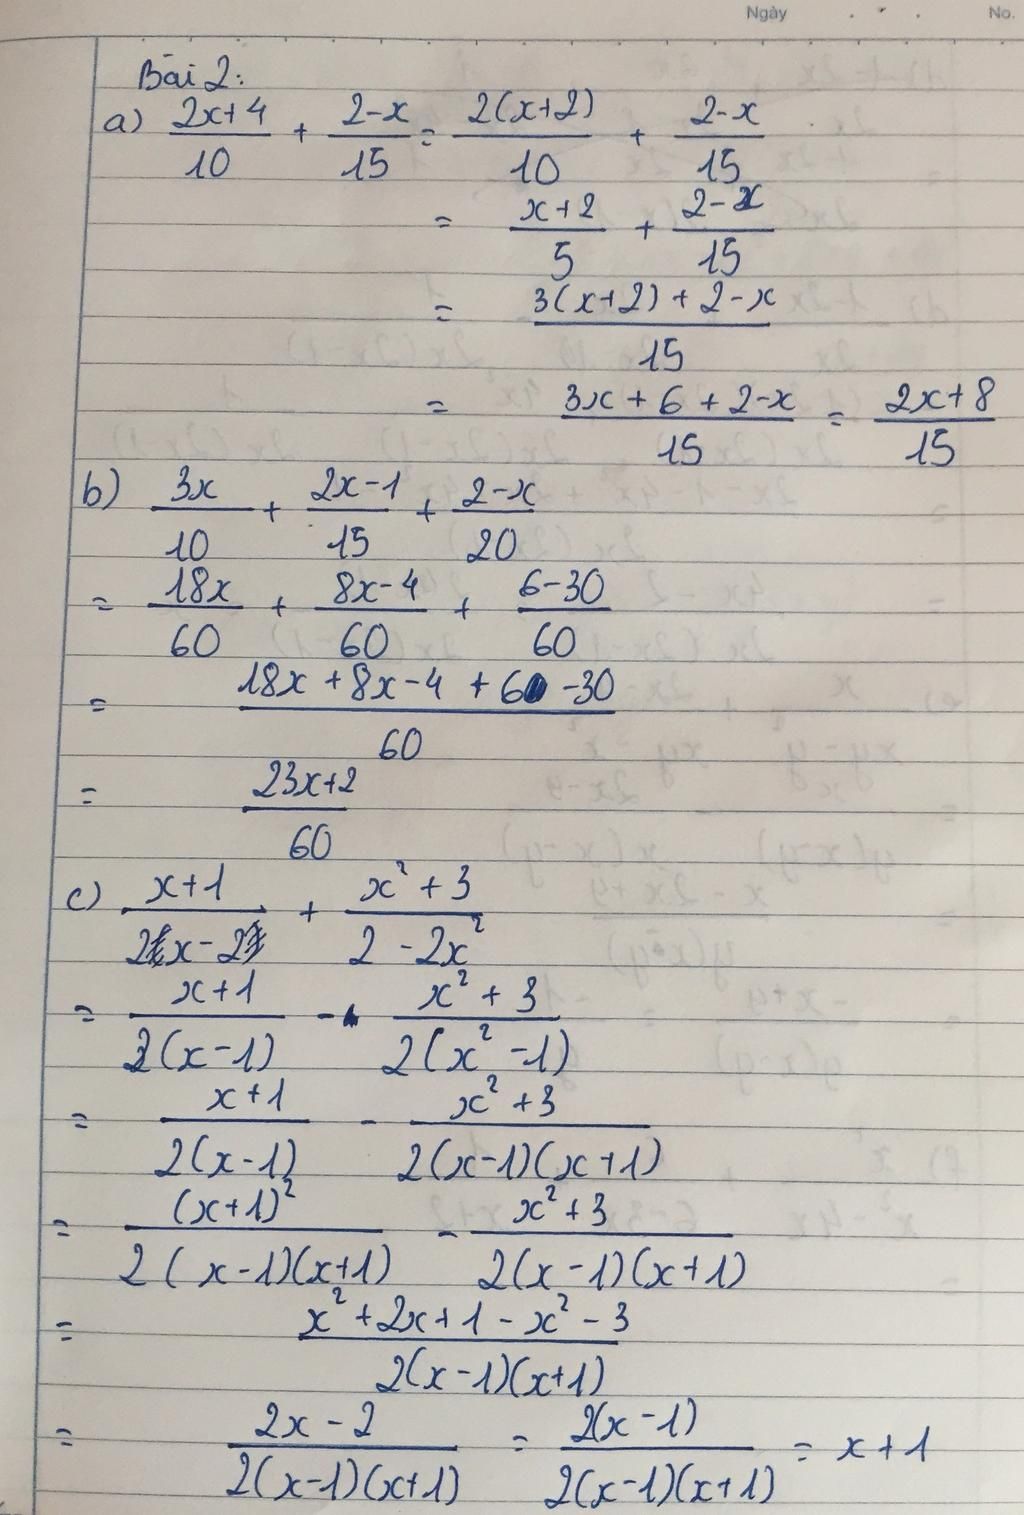 Ngày No.
Bài 2:
a) (2x+4)/10 + (2-x)/15 = 2(x+2)/10 + (2-x)/15
= (x+2)/5 + (2-x)/15
= (3(x+2) + 2-x)/15
= (3x + 6 + 2-x)/15 = (2x+8)/15
b) 3x/10 + (2x-1)/15 + (2-x)/20
= 18x/60 + (8x-4)/60 + (6-30)/60
= (18x + 8x - 4 + 6 - 30)/60
= (23x+2)/60
c) (x+1)/(2x-2) + (x²+3)/(2-2x²)
= (x+1)/(2(x-1)) - (x²+3)/(2(x²-1))
= (x+1)/(2(x-1)) - (x²+3)/(2(x-1)(x+1))
= (x+1)²/(2(x-1)(x+1)) - (x²+3)/(2(x-1)(x+1))
= (x²+2x+1-x²-3)/(2(x-1)(x+1))
= (2x-2)/(2(x-1)(x+1)) = 2(x-1)/(2(x-1)(x+1)) = x+1